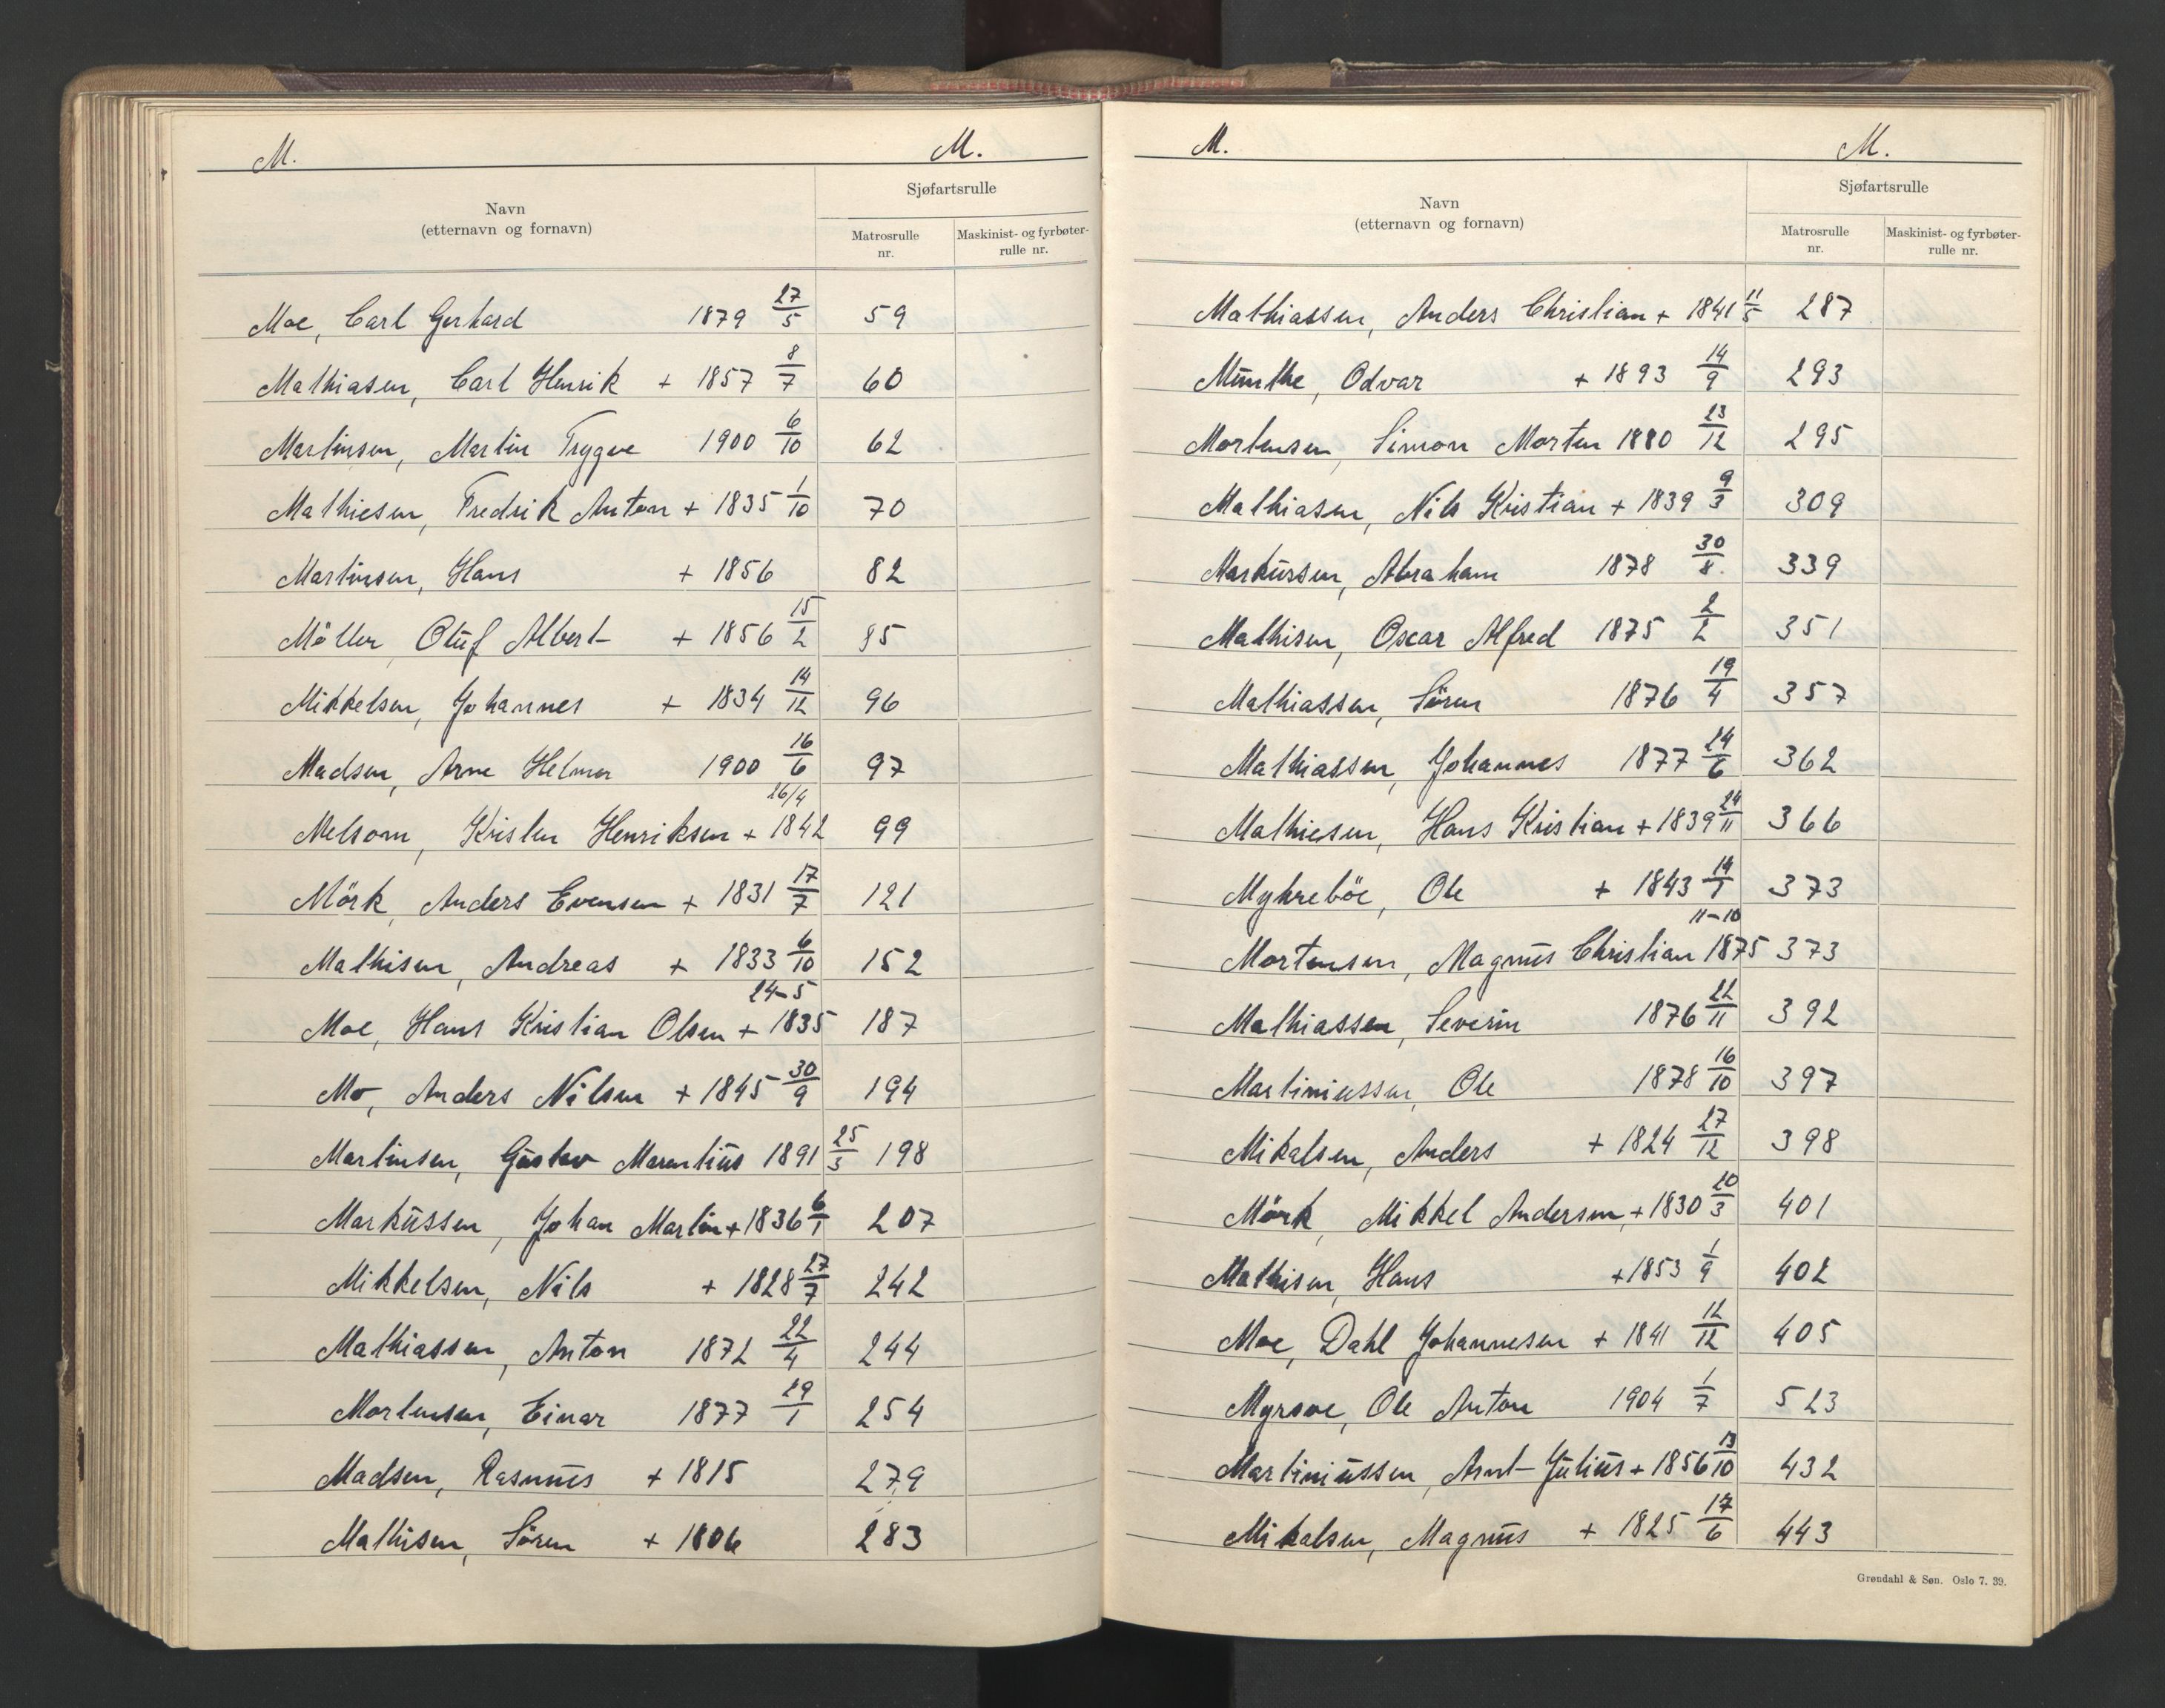 M. M.
Navn
(etternavn og fornavn)
Sjøfartsrulle
Matrosrulle nr.
Maskinist- og fyrbøter-rulle nr.
Moe, Carl Gerhard 1879 27/5 59
Mathiasen, Carl Henrik + 1857 8/7 60
Martinsen, Martin Trygve 1900 6/10 62
Mathiesen, Fredrik Anton + 1835 1/10 70
Martinsen, Hans + 1856 82
Möller, Oluf Albert + 1856 15/2 85
Mikkelsen, Johannes + 1834 14/12 96
Madsen, Arne Helmer 1900 16/6 97
Melsom, Kristen Henriksen + 1842 26/4 99
Mörk, Anders Evensen + 1831 17/7 121
Mathisen, Andreas + 1833 6/10 152
Moe, Hans Kristian Olsen + 1835 24-5 187
Mo, Anders Nilsen + 1845 30/9 194
Martinsen, Gustav Marentius 1891 25/3 198
Markussen, Johan Martin + 1836 6/1 207
Mikkelsen, Nils + 1828 27/7 242
Mathiassen, Anton 1872 22/4 244
Mortensen, Einar 1877 29/1 254
Madsen, Rasmus + 1815 279
Mathisen, Sören + 1806 283
M. M.
Navn
(etternavn og fornavn)
Sjøfartsrulle
Matrosrulle nr.
Maskinist- og fyrbøter-rulle nr.
Mathiassen, Anders Christian + 1841 11/5 287
Munthe, Odvar + 1893 14/9 293
Mortensen, Simon Morten 1880 23/12 295
Mathiasen, Nils Kristian + 1839 9/3 309
Markussen, Abraham 1878 30/8. 339
Mathisen, Oscar Alfred 1875 2/2 351
Mathiassen, Sören 1876 19/4 357
Mathiassen, Johannes 1877 24/6 362
Mathiesen, Hans Kristian + 1839 24/11 366
Myhreböe, Ole + 1843 14/1 373
Mortensen, Magnus Christian 1875 11-10 373
Mathiassen, Severin 1876 22/11 392
Martiniussen, Ole 1878 16/10 397
Mikalsen, Anders + 1824 27/12 398
Mörk, Mikkel Andersen, + 1830 20/3 401
Mathisen, Hans + 1853 1/9 402
Moe, Dahl Johannesen + 1841 12/12 405
Myrsve, Ole Anton 1904 1/7 523
Martiniussen, Arnt Julius + 1856 13/10 432
Mikalsen, Magnus + 1825 17/6 443
Grøndahl & Søn. Oslo 7. 39.